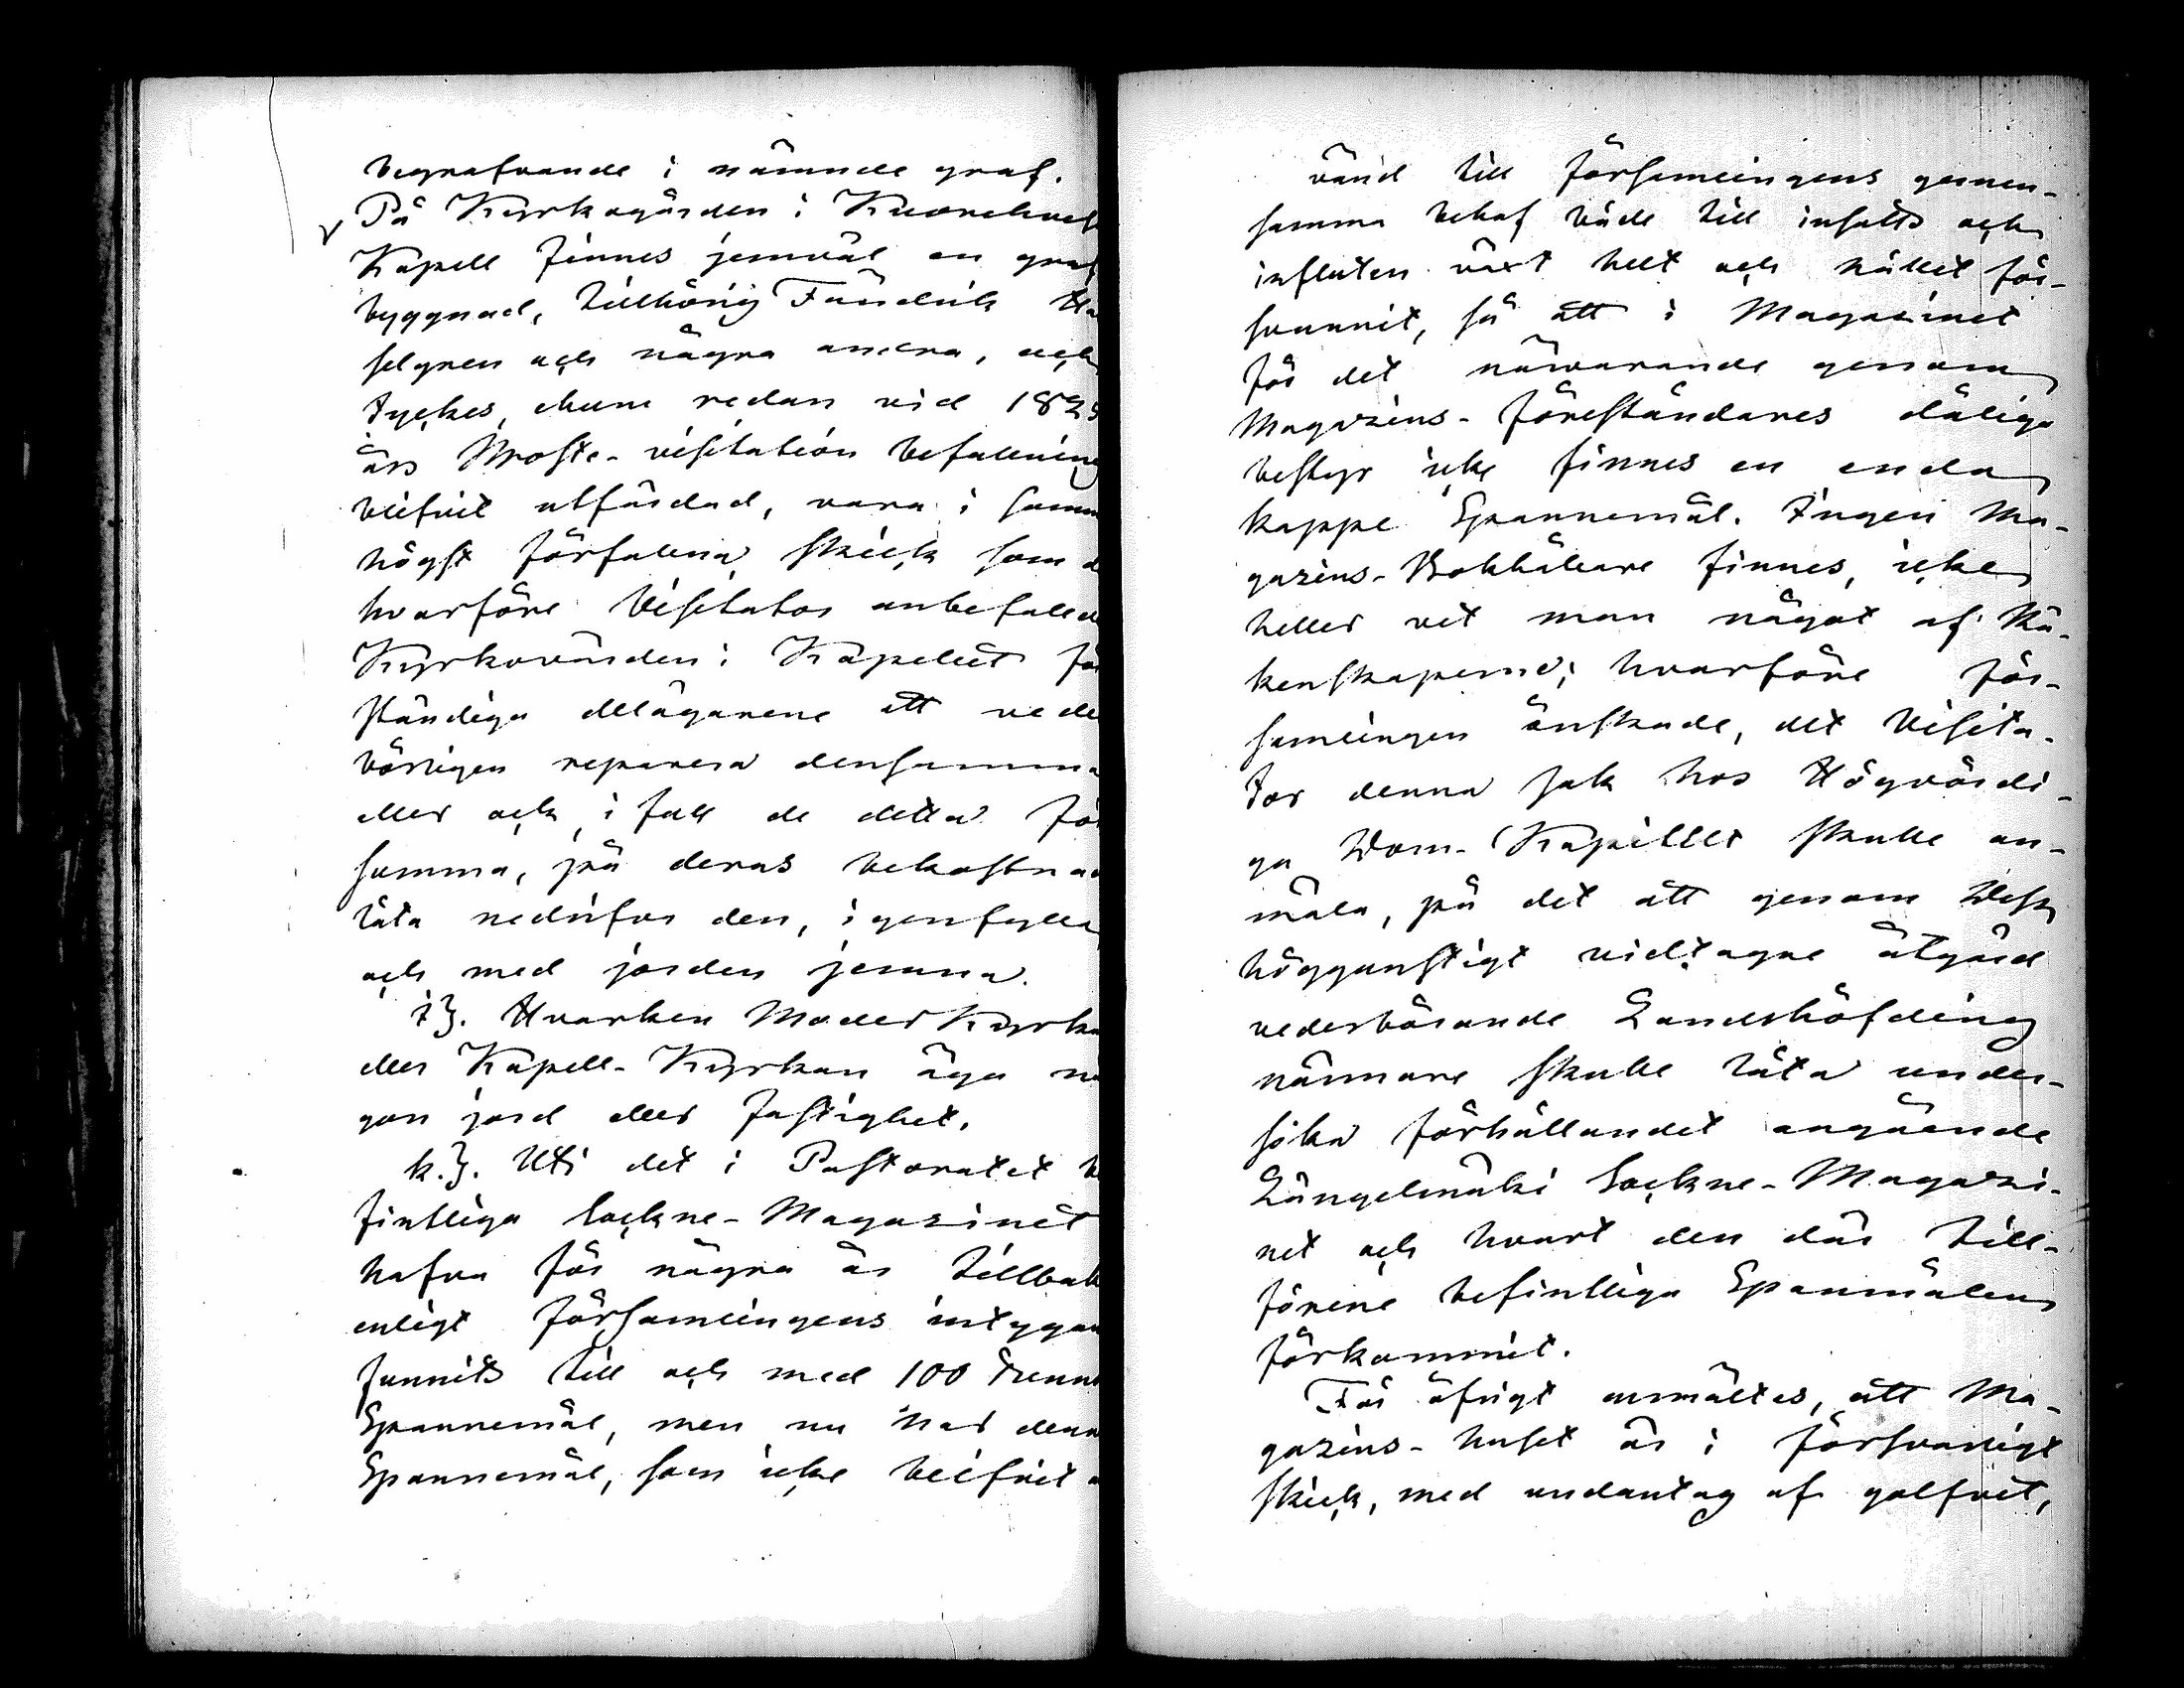 begrafvande i nämnde graf.
På Kyrkogården i Kuorehvesi
Kapell finnes jemväl en graf
byggnad, tillhörig Fändrik Ha
selgren och några andra, och
tyckes, ehuru redan vid 182
års Proste-visitation befallning
blifvit utfärdad, vara i samm
högst förfallna skick som d
hvarföre Visitator anbefalld
Kyrkovärden i Kapellet för
ständiga delägarene att vede
börligen reparera densamma
eller och, i fall de detta för
summa, på deras bekostna
låta nedrifva den, igenfylla
och med jorden jemna.
i}. Hvarken Moder Kyrka
eller Kapell-Kyrkan äga nå
gon jord eller fastighet.
k.}. Uti det i Pastoratet b
fintliga Sockne-Magazinet
hafva för några år tillbak
enligt Församlingens intygan
funnits till och med 100 Tunn
Spannemål, men nu har denn
Spannemål, som icke blifvit a
vänd till Församlingens gemen-
samma behof både till insatts och
influten växt helt och hållet för-
svunnit, så att i Magazinet
för det närvarande genom
Magazins-Föreståndares dåliga
bestyr icke finnes en enda
kappe Spannemål. Ingen Ma-
gazins-Bokhållare finnes, icke
heller vet man något af Rä-
kenskaperna; hvarföre För-
samlingen önskade, det Visita-
tor denna sak hos Högvärdi-
ga Dom-Kapitlet skulle an-
mäla, på det att genom Dess
höggunstigt vidtagne åtgärd
vederbörande Landshöfding
närmare skulle låta under-
söka förhållandet angående
Längelmäki Sockne-Magazi-
net och hvart den där till-
förene befintliga Spanmålen
förkommit.
För öfrigt anmältes, att Ma-
gazins-huset är i försvarligt
skick, med undantag af golfvet,